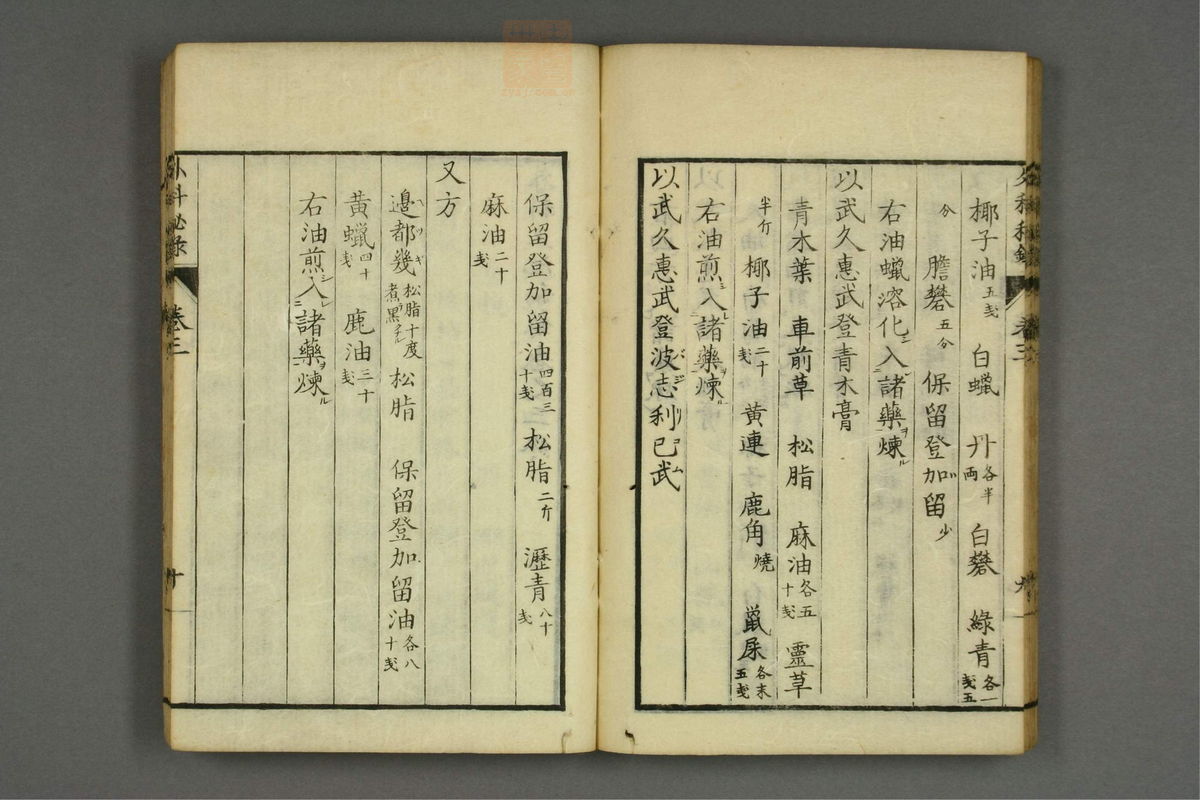 椰子油五戔 白蠟 丹各半両 白礬 綠青各一戔五
分 膽礬五分 保留登加留少
右油蠟溶化ニ入レ諸藥ヲ煉ル
以武久惠武登青木膏
青木葉 車前草 松脂 麻油各五十戔 靈草
半斤 椰子油二十戔 黄連 鹿角燒 鼠屎各末五戔
右油煎ニ入レ諸藥ヲ煉ル
以武久惠武登波志利已武
外科秘錄 卷三
保留登加留油四百三十戔 松脂二斤 瀝青八十戔
麻油二十戔
又方
邉都幾松脂十度煮黒 松脂 保留登加留油各八十戔
黄蠟四十戔 鹿油三十戔
右油煎シ入レ諸藥ヲ煉ル
外科秘錄 卷三 十